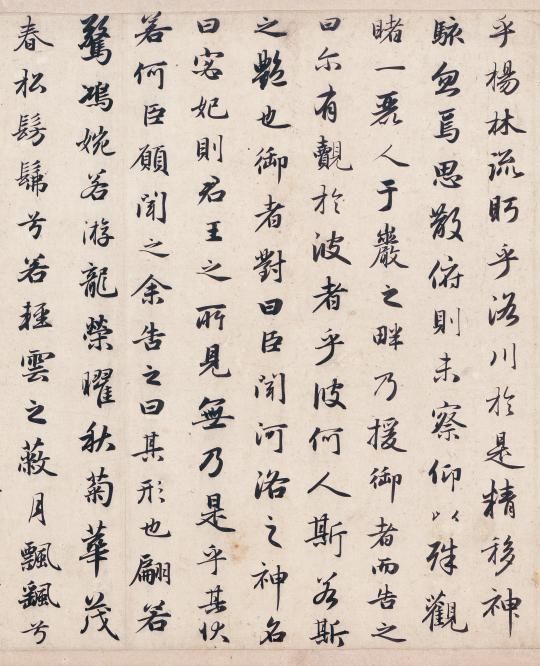 乎楊林流眄乎洛川於是精移神
駭忽焉思散俯則未察仰以殊觀
睹一麗人于巖之畔乃援御者而告之
曰尓有覿於彼者乎彼何人斯若斯
之艷也御者對曰臣聞河洛之神名
曰宓妃則君王之所見無乃是乎其狀
若何臣願聞之余告之曰其形也翩若
驚鴻婉若游龍榮曜秋菊華茂
春松髣髴兮若輕雲之蔽月飄飖兮